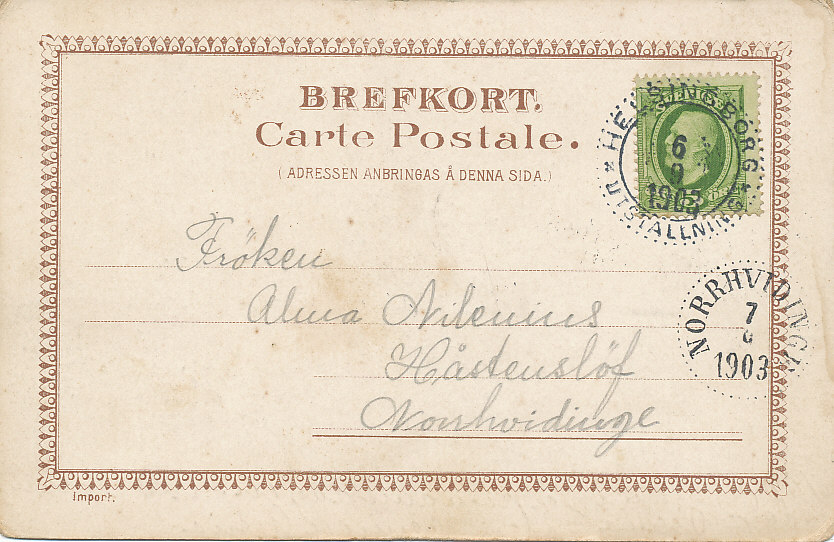 BREFKORT.
Carte Postale.
(ADRESSEN ANBRINGAS Å DENNA SIDA.)
HELSINGBORG
6
9
1903
UTSTÄLLNING
Fröken
Alma Nilenius
Håstenslöf
Norrhvidinge
NORRHVIDINGE
7
1903
Import.